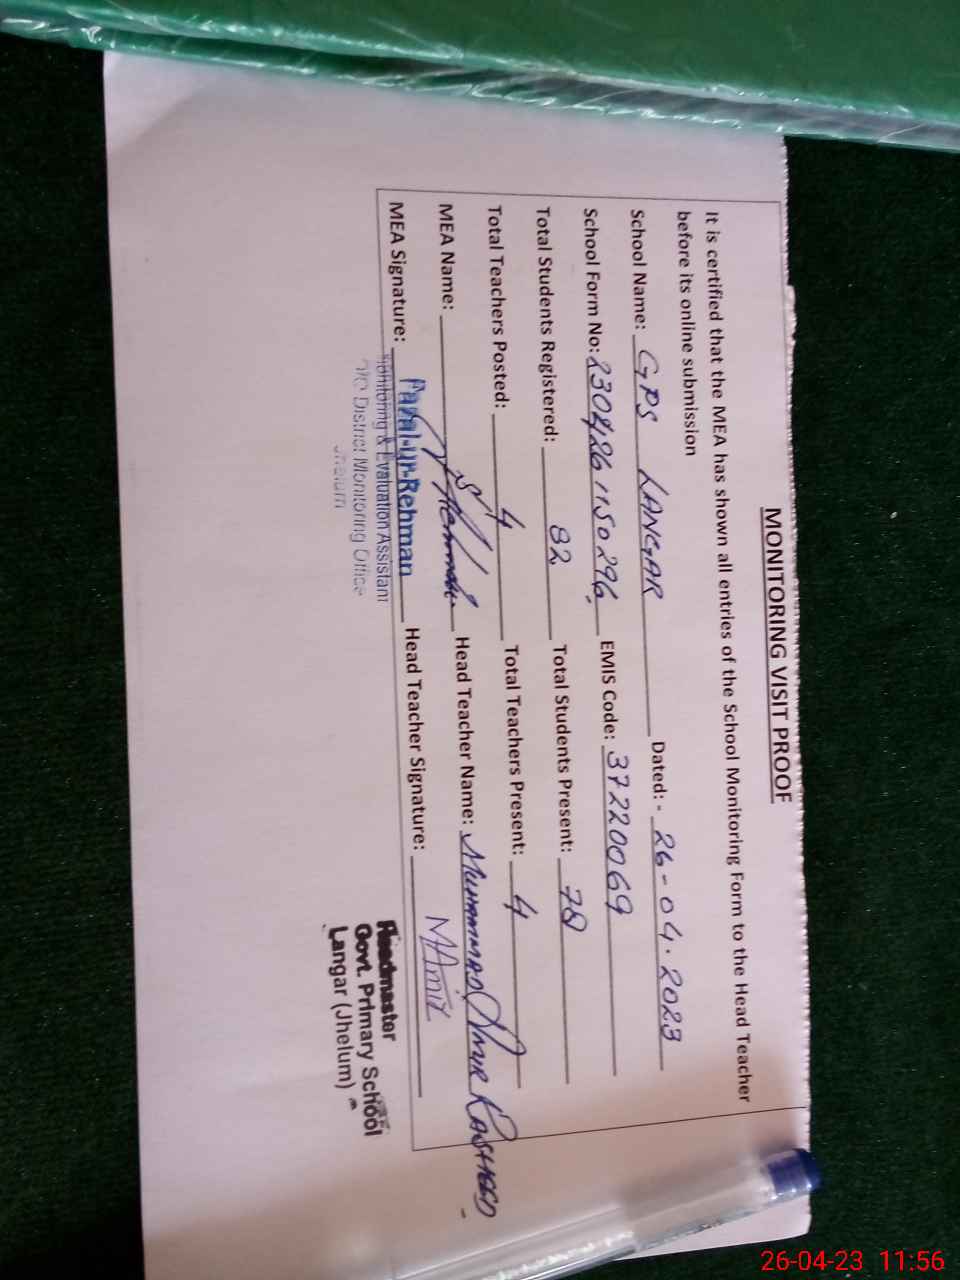 MONITORING VISIT PROOF
It is certified that the MEA has shown all entries of the School Monitoring Form to the Head Teacher
before its online submission
School Name: GPS LANGAR Dated: - 26-04.2023
School Form No: EMIS Code: 37220069
Total Students Registered: 82 Total Students Present: 78
Total Teachers Posted: 4 Total Teachers Present: 4
MEA Name: Head Teacher Name: MUHAMMAD AMIR RASHEED
MEA Signature: Head Teacher Signature: MAmir
Fazal-ur-Rehman
Monitoring & Evaluation Assistant
O/O District Monitoring Office
Jhelum
Headmaster
Govt. Primary School
Langar (Jhelum)
26-04-23 11:56